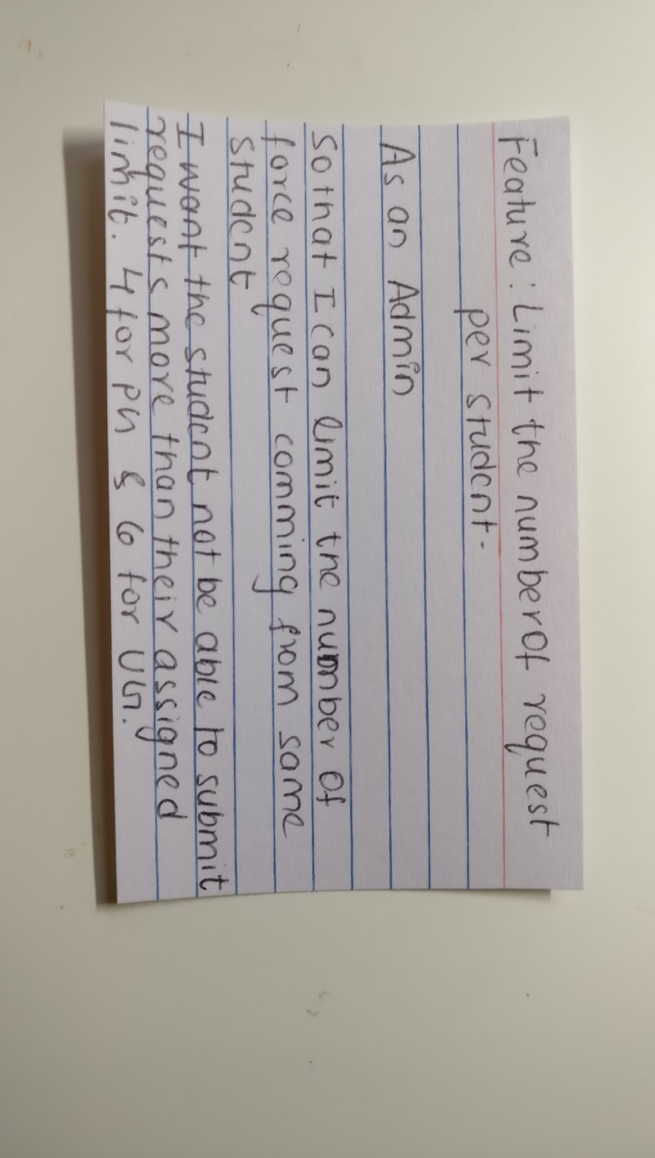 Feature: Limit the number of request
per student.
As an Admin
So that I can limit the number of
force request comming from same
student
I want the student not be able to submit
requests more than their assigned
limit. 4 for PG & 6 for UG.